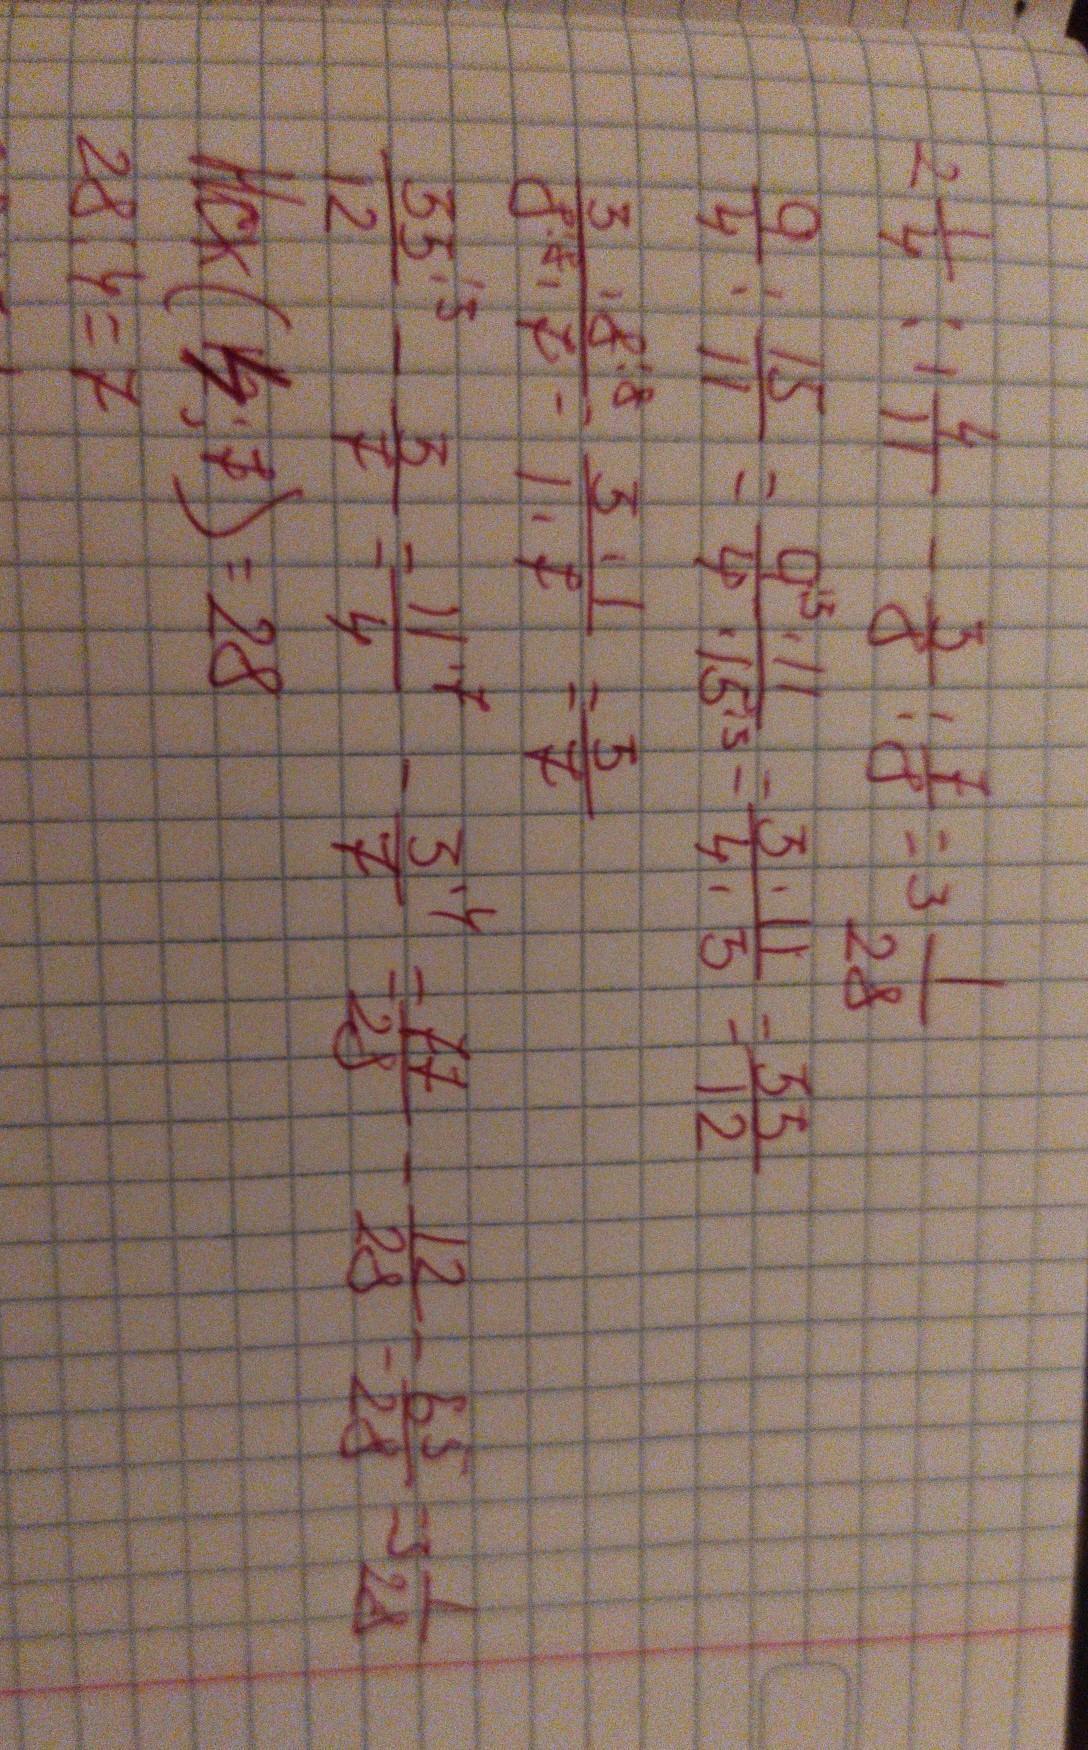 2 1/4 : 1 4/11 - 3/8 : 7/8 = 3 1/28
9/4 : 15/11 = 9:3·11/4·15:3 = 3·11/4·5 = 33/12
3·8:8/8:8·7 = 3·1/1·7 = 3/7
33:3/12 - 3/7 = 11·7/4 - 3·4/7 = 77/28 - 12/28 = 65/28 = 3 1/28
НСК(4;7) = 28
28:4=7